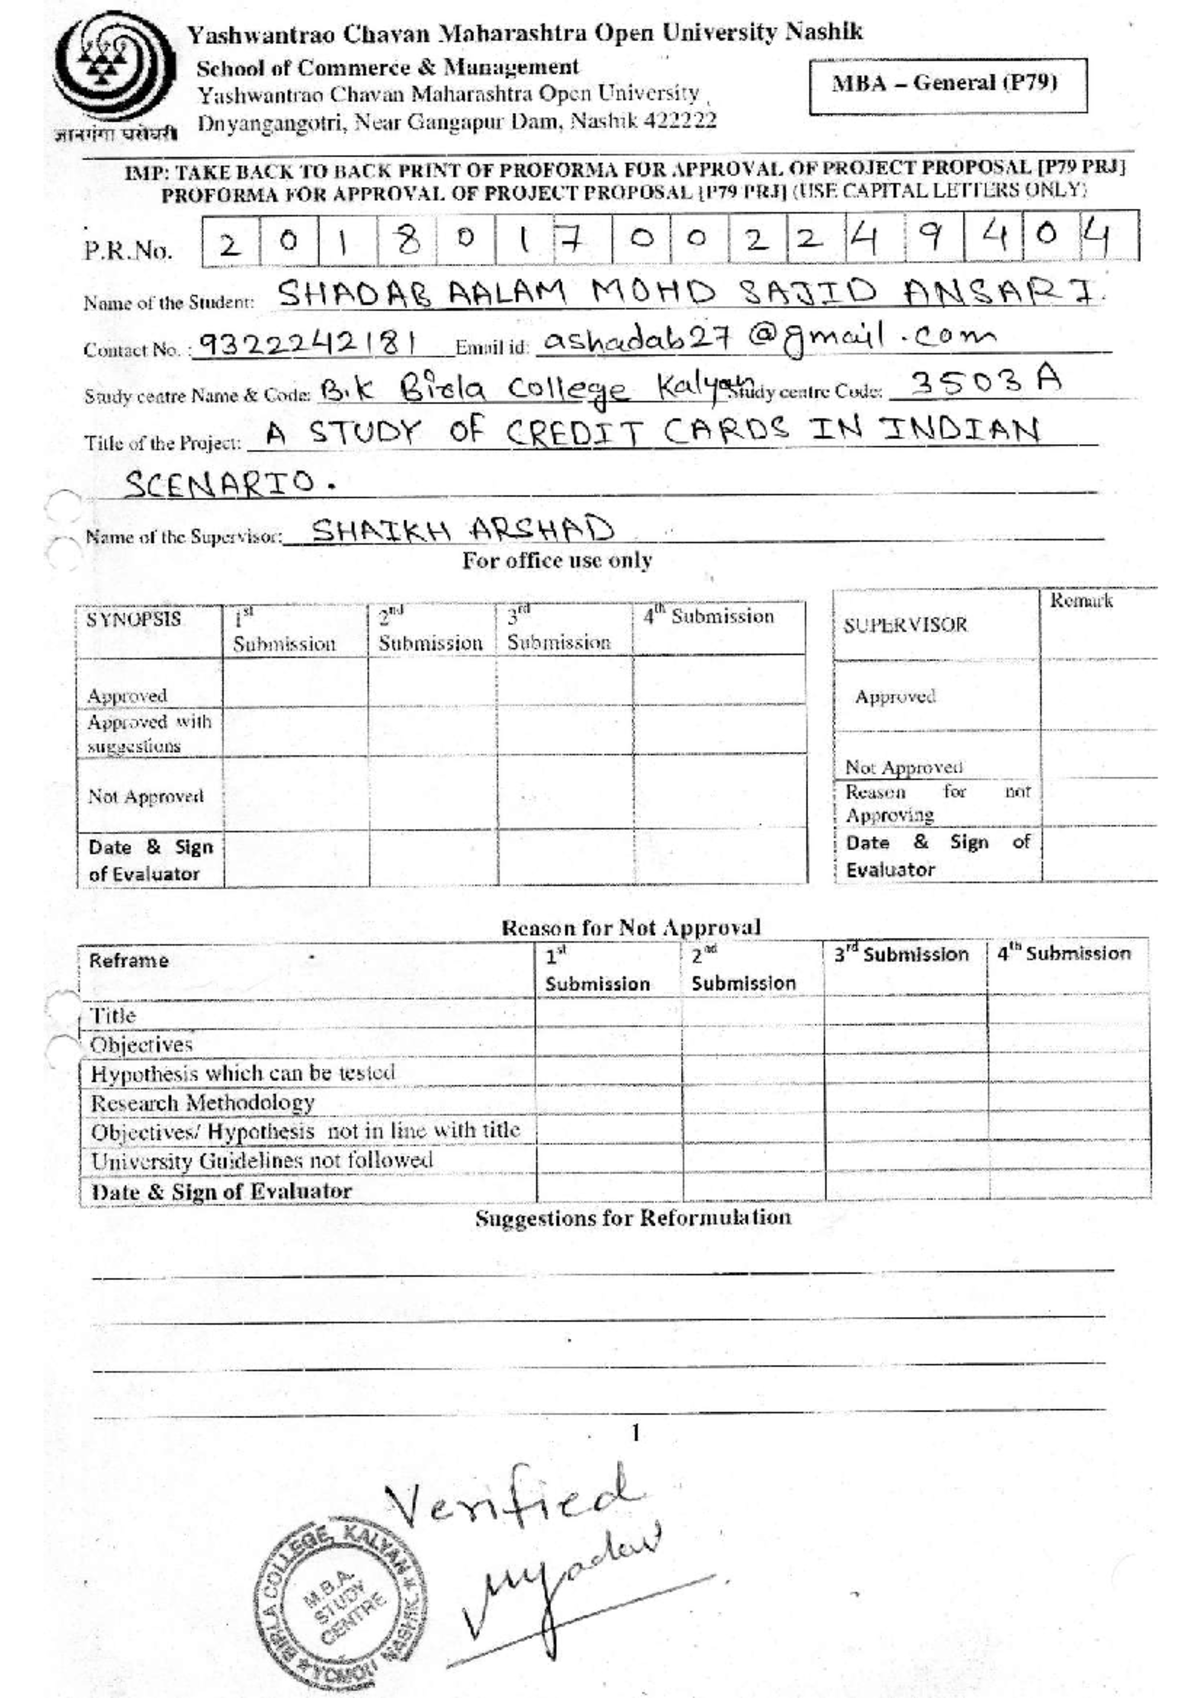 Yashwantrao Chavan Maharashtra Open University Nashik
School of Commerce & Management
Yashwantrao Chavan Maharashtra Open University,
Dnyangangotri, Near Gangapur Dam, Nashik 422222
MBA – General (P79)
ज्ञानगंगा घरोघरी
IMP: TAKE BACK TO BACK PRINT OF PROFORMA FOR APPROVAL OF PROJECT PROPOSAL [P79 PRJ]
PROFORMA FOR APPROVAL OF PROJECT PROPOSAL [P79 PRJ] (USE CAPITAL LETTERS ONLY)
P.R.No. 2 0 1 8 0 1 7 0 0 2 2 4 9 4 0 4
Name of the Student: SHADAB AALAM MOHD SAJID ANSARI.
Contact No. : 9322242181 Email id: ashadab27@gmail.com
Study centre Name & Code: B.K Birla College Kalyan Study centre Code: 3503 A
Title of the Project: A STUDY OF CREDIT CARDS IN INDIAN
SCENARIO.
Name of the Supervisor: SHAIKH ARSHAD
For office use only
SYNOPSIS 1st Submission 2nd Submission 3rd Submission 4th Submission
Approved
Approved with suggestions
Not Approved
Date & Sign of Evaluator
SUPERVISOR Remark
Approved
Not Approved
Reason for not Approving
Date & Sign of Evaluator
Reason for Not Approval
Reframe 1st Submission 2nd Submission 3rd Submission 4th Submission
Title
Objectives
Hypothesis which can be tested
Research Methodology
Objectives/ Hypothesis not in line with title
University Guidelines not followed
Date & Sign of Evaluator
Suggestions for Reformulation
1
Verified
Myadav
BIRLA COLLEGE, KALYAN * YCMOU NASHIK *
M.B.A.
STUDY
CENTRE